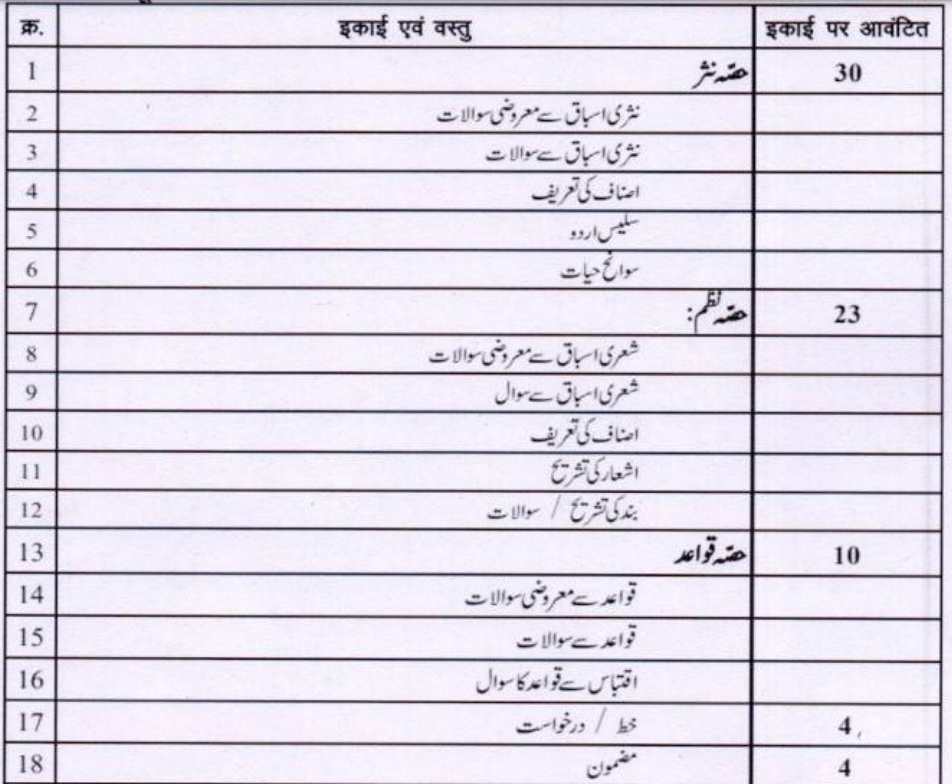 क्र. इकाई एवं वस्तु इकाई पर आवंटित
1 حصّہ نثر 30
2 نثری اسباق سے معروضی سوالات
3 نثری اسباق سے سوالات
4 اصناف کی تعریف
5 سلیس اردو
6 سوانح حیات
7 حصّہ نظم: 23
8 شعری اسباق سے معروضی سوالات
9 شعری اسباق سے سوال
10 اصناف کی تعریف
11 اشعار کی تشریح
12 بند کی تشریح / سوالات
13 حصّہ قواعد 10
14 قواعد سے معروضی سوالات
15 قواعد سے سوالات
16 اقتباس سے قواعد کا سوال
17 خط / درخواست 4
18 مضمون 4